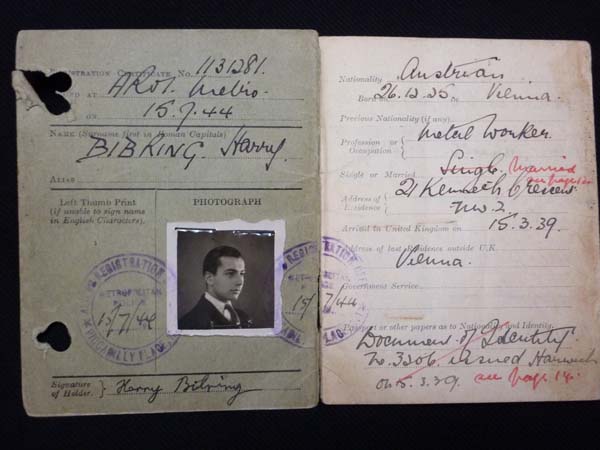 REGISTRATION CERTIFICATE No. 1131281.
ISSUED AT ARO1. Metro.
ON 15.7.44
NAME (Surname first in Roman Capitals)
BIBKING. Harry.
ALIAS
Left Thumb Print
(if unable to sign name
in English Characters).
PHOTOGRAPH
REGISTRATION
METROPOLITAN
15/7/44
PICCADILLY PLACE
REGISTRATION
15/7/44
Signature of Holder. Harry Bibring
Nationality Austrian
Born on 26.12.25 in Vienna.
Previous Nationality (if any)
Profession or Occupation Metal Worker
Single or Married Single Married
see page 12
Address of Residence 21 Kenneth Crescent
N.W.2.
Arrived in United Kingdom on 15.3.39.
Address of last Residence outside U.K.
Vienna.
Government Service
Passport or other papers as to Nationality and Identity.
Document of Identity
No. 3306. issued Harwich
on 15.3.39. see page 14.